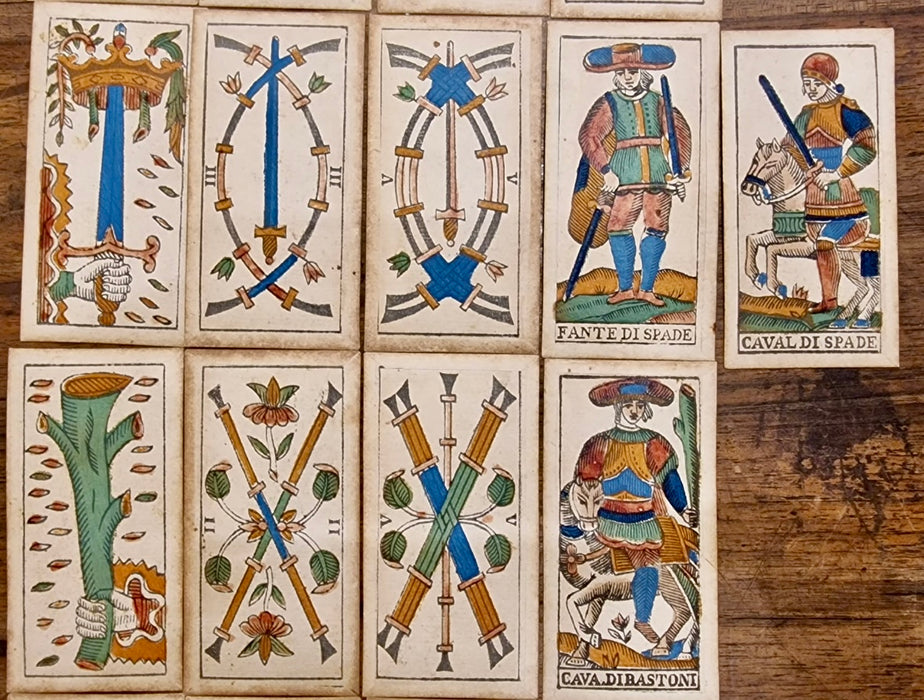 III III
V V
FANTE DI SPADE
CAVAL DI SPADE
II II
V V
CAVA.DIBASTONI